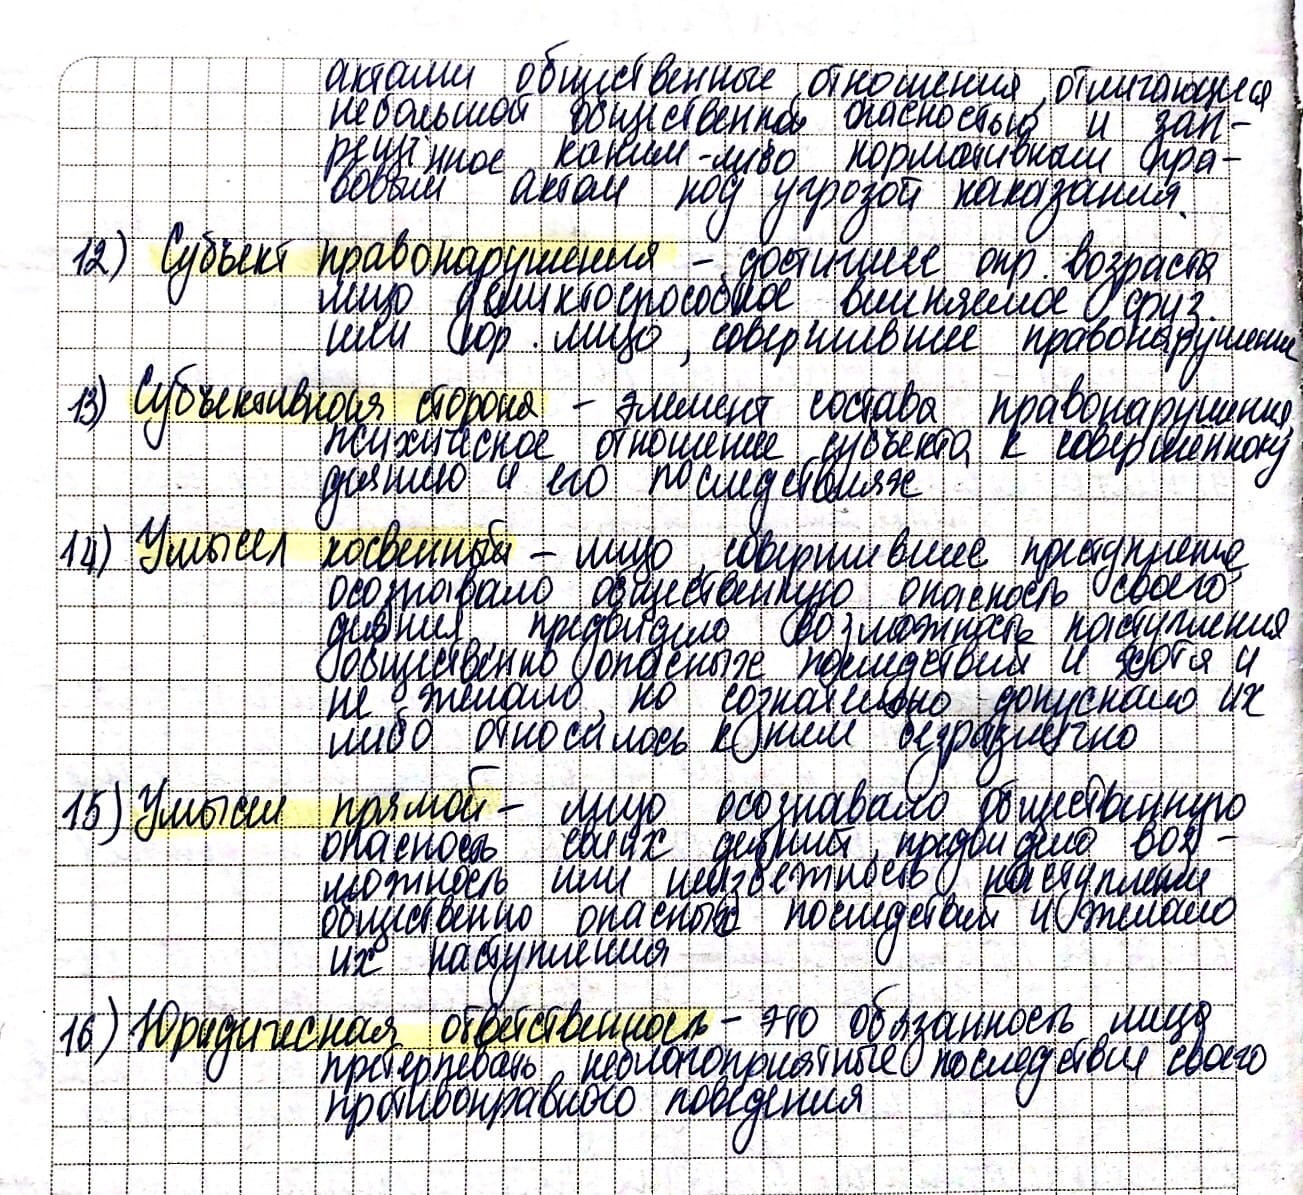 актами общественные отношения, отличающиеся
небольшой общественной опасностью и зап-
рещённое каким-либо нормативным пра-
вовым актом под угрозой наказания.
12) Субъект правонарушения - достигшее опр. возраста
лицо деликтоспособное вменяемое физ.
или юр. лицо, совершившее правонарушение
13) Субъективная сторона - элемент состава правонарушения,
психическое отношение субъекта к совершенному
деянию и его последствиях
14) Умысел косвенный - лицо, совершившее преступление,
осознавало общественную опасность своего
деяния, предвидело возможность наступления
общественно опасных последствий и хотя и
не желало, но сознательно допускало их
либо относилось к ним безразлично
15) Умысел прямой - лицо осознавало общественную
опасность своих деяний, предвидело воз-
можность или неизбежность наступления
общественно опасных последствий и желало
их наступления
16) Юридическая ответственность - это обязанность лица
претерпевать неблагоприятные последствия своего
противоправного поведения